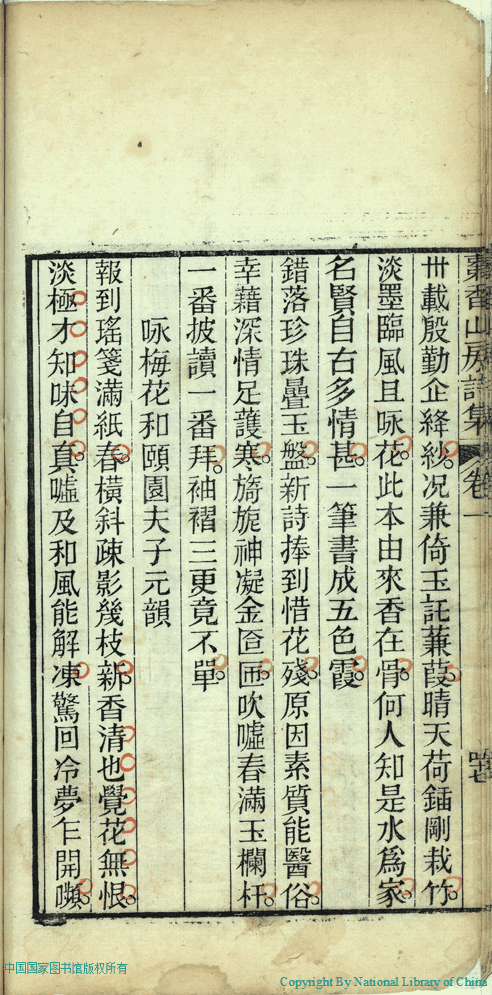 香山房詩集 卷一
卅載殷勤企絳紗况兼倚玉託蒹葭晴天荷鍤剛栽竹
淡墨臨風且咏花此本由來香在骨何人知是水爲家
名賢自古多情甚一筆書成五色霞
錯落珍珠疊玉盤新詩捧到惜花殘原因素質能醫俗
幸藉深情足護寒旖旎神凝金匼匝吹噓春滿玉欄杆
一番披讀一番拜袖褶三更竟不單
咏梅花和頤園夫子元韻
報到瑤箋滿紙春橫斜疎影幾枝新香清也覺花無恨
淡極才知味自真噓及和風能解凍驚回冷夢乍開嚬
中国国家图书馆版权所有
Copyright By National Library of China